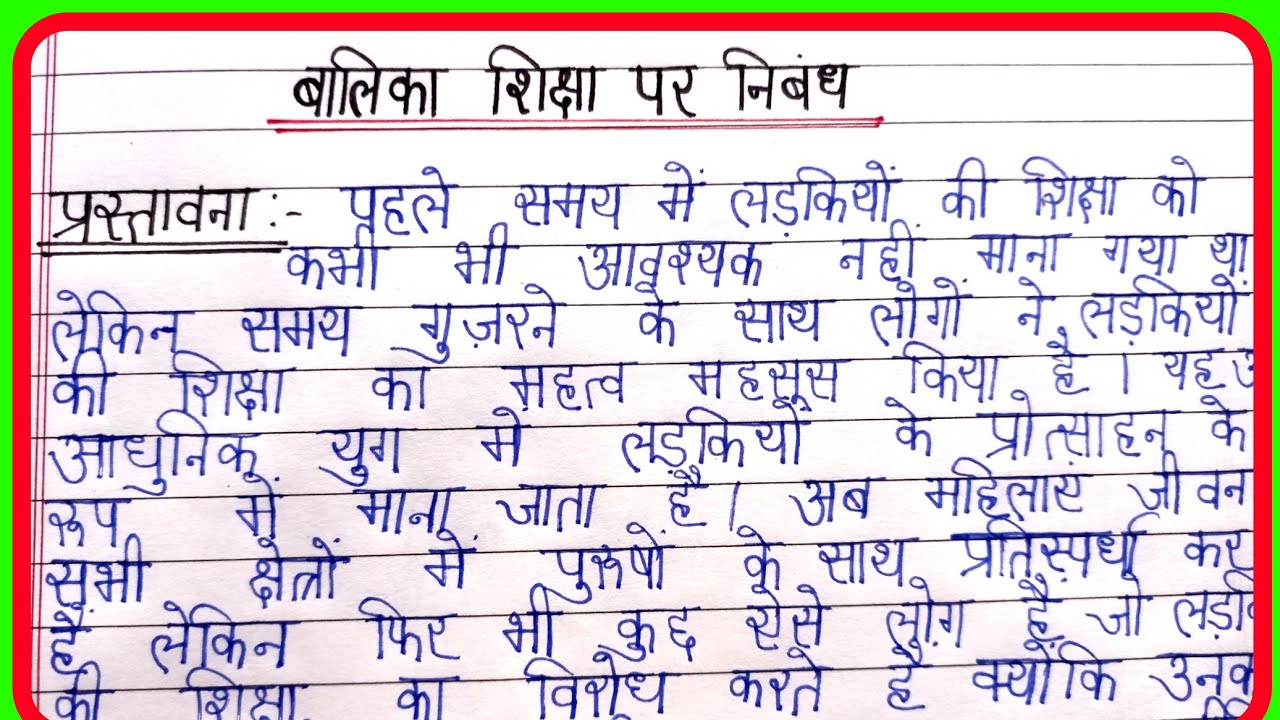 बालिका शिक्षा पर निबंध
प्रस्तावना :- पहले समय में लड़कियों की शिक्षा को
कभी भी आवश्यक नहीं माना गया था
लेकिन समय गुज़रने के साथ लोगों ने लड़कियों
की शिक्षा का महत्व महसूस किया है । यह
आधुनिक युग में लड़कियों के प्रोत्साहन के
रूप में माना जाता है । अब महिलाएं जीवन
सभी क्षेत्रों में पुरूषों के साथ प्रतिस्पर्धा कर
है लेकिन फिर भी कुछ ऐसे लोग है जो
की शिक्षा का विरोध करते है क्योंकि